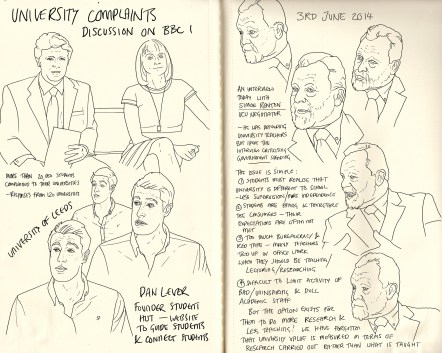 UNIVERSITY COMPLAINTS
DISCUSSION ON BBC 1
MORE THAN 20,000 STUDENTS
COMPLAINED TO THEIR UNIVERSITIES
- RESPONSES FROM 120 UNIVERSITIES
UNIVERSITY OF LEEDS
DAN LEVER
FOUNDER STUDENT
HUT – WEBSITE
TO GUIDE STUDENTS
& CONNECT STUDENTS
3RD JUNE 2014
AN INTERVIEW
TODAY WITH
SIMON RENTON
UCU NEGOTIATOR
– HE WAS DEFENDING
UNIVERSITY TEACHERS
BUT USED THE
INTERVIEW CRITICISING
GOVERNMENT FUNDING
THE ISSUE IS SIMPLE:
① STUDENTS MUST REALISE THAT
UNIVERSITY IS DIFFERENT TO SCHOOL
– LESS SUPERVISION/MORE INDEPENDENCE
② STUDENTS ARE PAYING & THEREFORE
THE CONSUMERS – THEIR
EXPECTATIONS ARE OFTEN NOT
MET
③ TOO MUCH BUREAUCRACY &
RED TAPE – MANY TEACHERS
TIED UP IN OFFICE WORK
WHEN THEY SHOULD BE TEACHING,
LECTURING/RESEARCHING
④ DIFFICULT TO LIMIT ACTIVITY OF
BAD/UNINSPIRING & DULL
ACADEMIC STAFF
BUT THE OPTION EXISTS FOR
THEM TO DO MORE RESEARCH &
LESS TEACHING! WE HAVE FORGOTTEN
THAT UNIVERSITY VALUE IS MEASURED IN TERMS OF
RESEARCH CARRIED OUT RATHER THAN WHAT IS TAUGHT